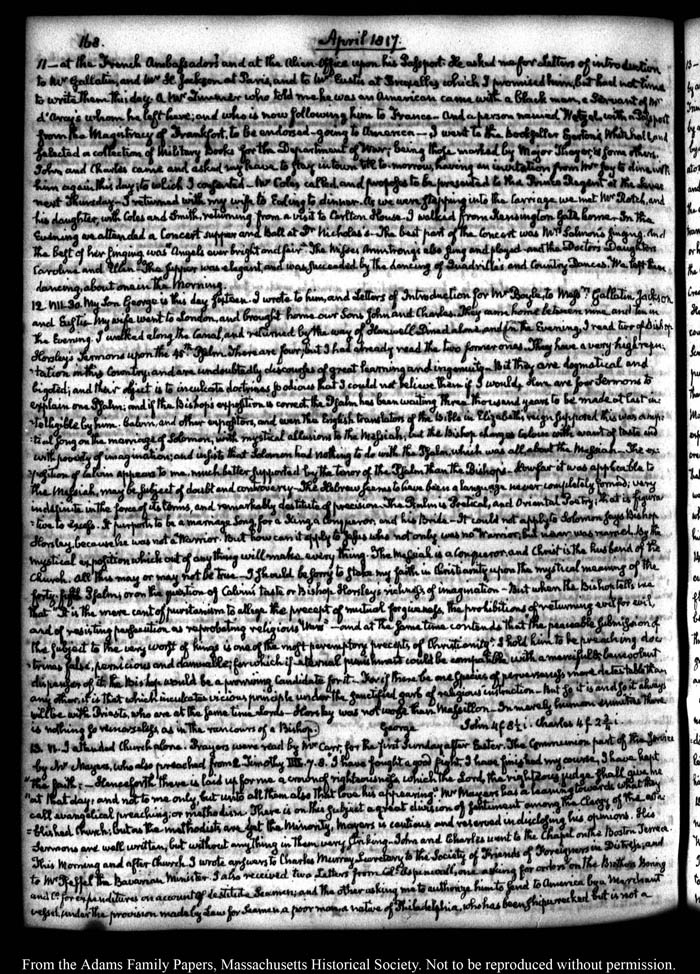 168. April 1817.
11 — at the French Ambassadors and at the Alien Office upon his Passport. He asked me for Letters of introduction
to Mr Gallatin, and Mr H. Jackson at Paris, and to Mr Eustis at Bruxelles which I promised him, but had not time
to write them this day. A Mr Turner who told me he was an American came with a black man, a Servant of Mr
d'Aray's whom he left here; and who is now following him to France — And a person named Wetzel with a Passport
from the Magistracy of Frankfort, to be endorsed — going to America — I went to the bookseller Egerton's, Whitehall, and
selected a collection of Military Books for the Department of War; being those marked by Major Thayer, & some others.
John and Charles came and asked my leave to stay in town till to-morrow, having an invitation from Mr to dine with
him again this day; to which I consented — Mr Coles called, and proposes to be presented to the Prince Regent at the Levee
next Thursday — I returned with my wife to Ealing to dinner. As we were stepping into the Carriage we met Mr Rotch, and
his daughter, with Coles and Smith, returning from a visit to Carlton House. I walked from Kensington Gate home. In the
Evening we attended a Concert supper and Ball at Dr Nicholas's — The best part of the Concert was Mrs Salmon's singing. And
the best of her singing was "Angels ever bright and fair." The Misses Armstrong also sung and played — and the Doctors Daughters
Caroline and Ellen — The supper was elegant, and was succeeded by the dancing of Quadrilles and Country Dances. We left them
dancing, about one in the Morning.
12. VII. 30. My Son George is this day sixteen. I wrote to him, and Letters of Introduction for Mr Boyle, to Messrs Gallatin, Jackson
and Eustis. My wife went to London, and brought home our Sons John and Charles. They came home between nine and ten in
the Evening. I walked along the Canal, and returned by the way of Hanwell — Dined alone, and in the Evening, I read two of Bishop
Horsley's Sermons upon the 45th Psalm. There are four, but I had already read the two former ones. They have a very high repu-
-tation in this Country; and are undoubtedly discourses of great learning and ingenuity — But they are dogmatical and
bigoted; and their object is to inculcate doctrines so odious that I could not believe them if I would. Here are four Sermons to
explain one Psalm; and if the Bishops exposition is correct, the Psalm has been waiting three thousand years to be made at last in-
-telligible by him. Calvin, and other expositors, and even the English translators of the Bible in Elizabeth's reign supposed this was a
song on the marriage of Solomon, with mystical allusions to the Messiah, but the Bishop charges Calvin with want of taste and
with poverty of imagination; and insists that Solomon had nothing to do with the Psalm, which was all about the Messiah — The ex-
-position of Calvin appears to me, much better supported by the tenor of the Psalm than the Bishops. How far it was applicable to
the Messiah, may be subject of doubt and controversy — The Hebrew seems to have been a language never completely formed; very
indefinite in the force of its terms, and remarkably destitute of precision. The Psalm is Poetical, and Oriental Poetry; that is figura-
-tive to excess. It purports to be a marriage Song, for a King, a Conqueror, and his Bride — It could not apply to Solomon says Bishop
Horsley, because he was not a Warrior. But how can it apply to Jesus who not only was no Warrior, but never was married. By the
mystical exposition which out of any thing will make every thing. The Messiah is a Conqueror, and Christ is the husband of the
Church. All this may or may not be true — I should be sorry to stake my faith in Christianity upon the mystical meaning of the
forty-fifth Psalm, or on the question of Calvin's taste or Bishop Horsley's richness of imagination — But when the Bishop tells me
that "It is the mere cant of puritanism to allege the precept of mutual forgiveness, the prohibitions of returning evil for evil,
and of resisting persecution as reprobating religious Wars" — and at the same time contends that the peaceable submission of
the Subject to the very worst of kings is one of the most peremptory precepts of Christianity" I hold him to be preaching doc-
-trines false, pernicious and damnable; for which if eternal punishment could be compatible with a merciful & benevolent
dispenser of it, the Bishop would be a promising candidate for it. For if there be one species of perverseness more detestable than
any other, it is that which inculcates vicious principle under the sanctified garb of religious instruction — But so it is and so it always
will be with Priests, who are at the same time Lords — Horsley was not worse than Massillon — In merely human enmities there
is nothing so remorseless as in the rancours of a Bishop. George John 4 f 8½ i. Charles 4 f 2¾ i.
13. VI. I attended Church alone. Prayers were read by Mr Carr, for the first Sunday after Easter. The Communion part of the Service
by Mr Mayers, who also preached from 2 Timothy IV. 7. 8. I have fought a good fight, I have finished my course, I have kept
"the faith: — Henceforth there is laid up for me a crown of righteousness, which the Lord, the righteous judge shall give me
"at that day; and not to me only, but unto all them also that love his appearing." Mr Mayers has a leaning towards what they
call evangelical preaching; or methodism. There is on this subject a great division of sentiment among the Clergy of the esta-
-blished Church; but as the methodists are yet the Minority, Mayers is cautious and reserved in disclosing his opinions. His
Sermons are well written, but without anything in them very striking — John and Charles went to the Chapel on the Boston Terrace.
This Morning and after Church I wrote answers to Charles Murray, Secretary to the Society of Friends of Foreigners in Distress, and
to Mr Pfeffel the Bavarian Minister. I also received two Letters from Coll Aspinwall, one asking for orders on the Brothers Baring
and Co. for expenditures on account of destitute Seamen; and the other asking me to authorize him to send to America by a Merchant
vessel, under the provision made by Law for Seamen a poor man a native of Philadelphia, who has been shipwrecked but is not a
From the Adams Family Papers, Massachusetts Historical Society. Not to be reproduced without permission.